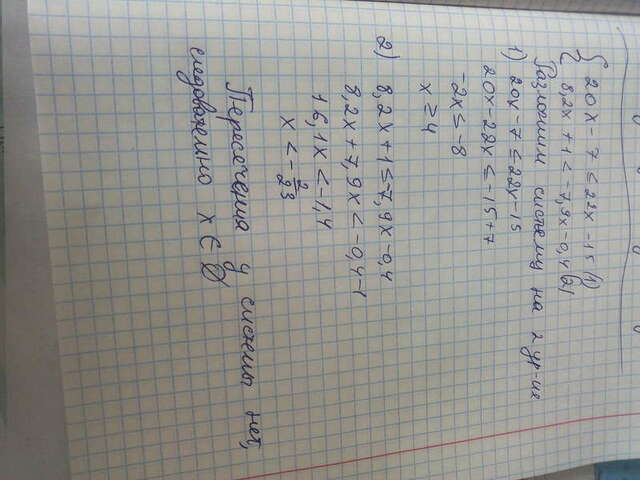 { 20x - 7 ≤ 22x - 15 (1)
{ 8,2x + 1 < -7,9x - 0,4 (2)
Разложим систему на 2 ур-ия
1) 20x - 7 ≤ 22x - 15
20x - 22x ≤ -15 + 7
-2x ≤ -8
x ≥ 4
2) 8,2x + 1 ≤ -7,9x - 0,4
8,2x + 7,9x < -0,4 - 1
16,1x < -1,4
x < - 2/23
Пересечения у системы нет,
следовательно x ∈ ∅